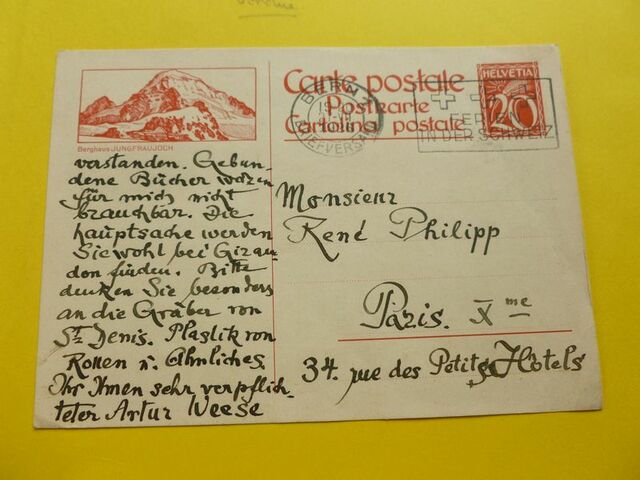 Carte postale
Postkarte
Cartolina postale
HELVETIA
20
BERN
FERIEN
IN DER SCHWEIZ
Berghaus JUNGFRAUJOCH
verstanden. Gebun-
dene Bücher wären
für mich nicht
brauchbar. Die
hauptsache werden
Sie wohl bei Girau-
don finden. Bitte
denken Sie besonders
an die Gräber von
St Denis. Plastik von
Rouen u. Ähnliches.
Ihr Ihnen sehr verpflich-
teter Artur Weese
Monsieur
René Philipp
Paris. X me
34. rue des Petits Hôtels